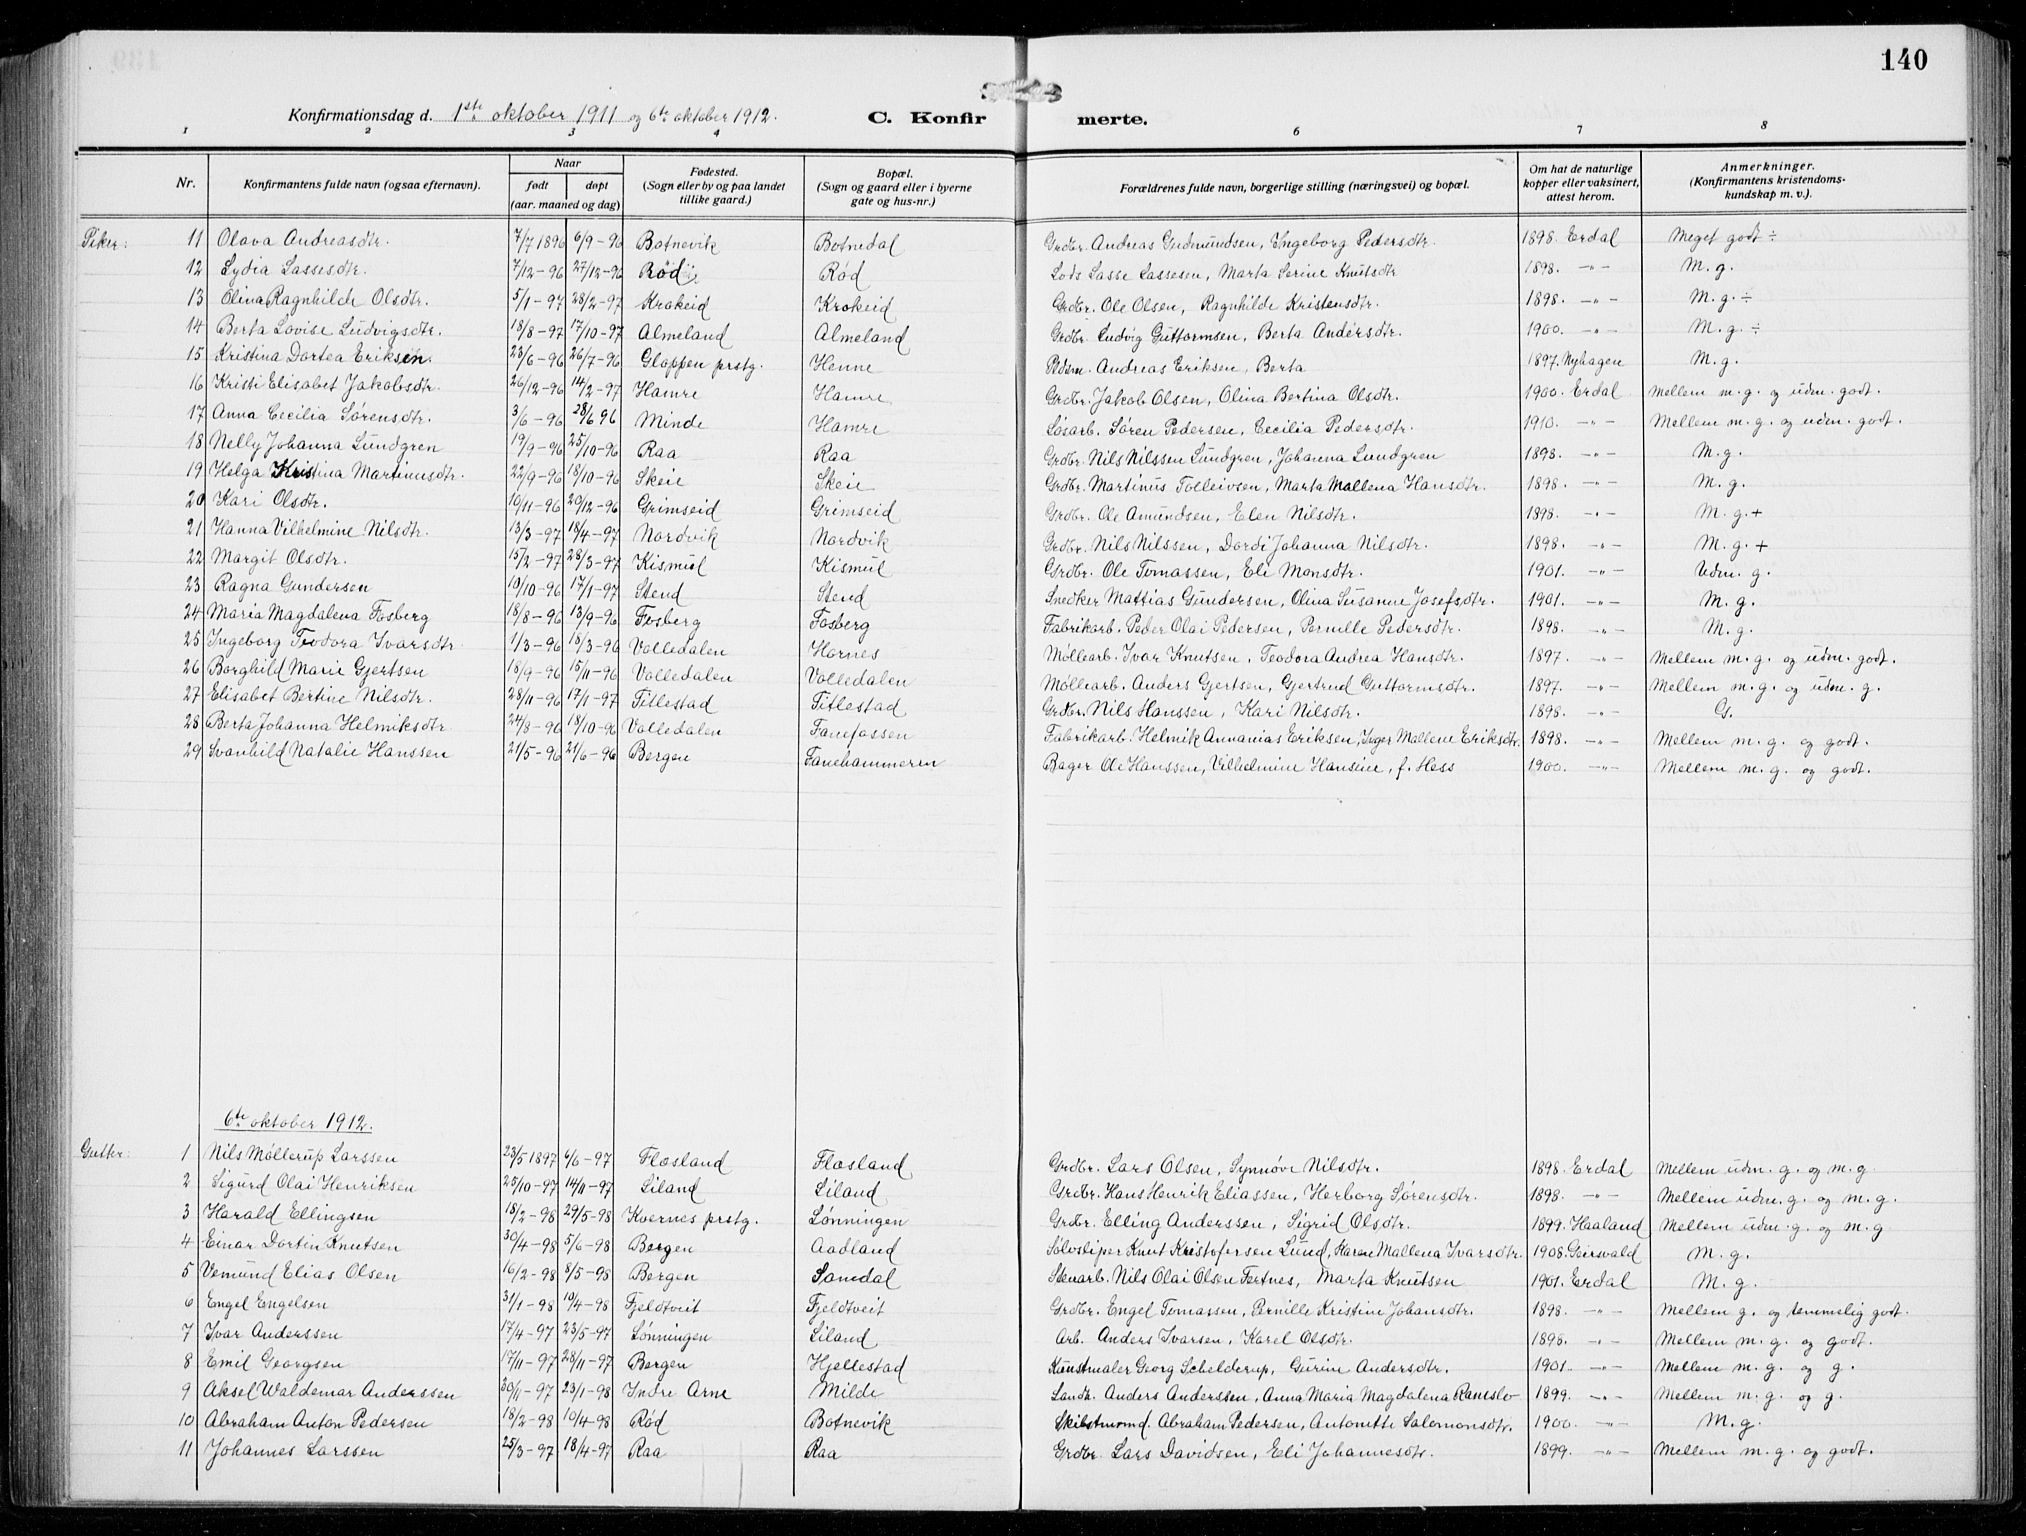 140
Konfirmationsdag d. 1ste oktober 1911 og 6te oktober 1912. C. Konfirmerte.
1 2 3 4 6 7 8
Nr. Konfirmantens fulde navn (ogsaa efternavn). Naar født døpt (aar, maaned og dag) Fødested. (Sogn eller by og paa landet tillike gaard.) Bopæl. (Sogn og gaard eller i byerne gate og hus-nr.) Forældrenes fulde navn, borgerlige stilling (næringsvei) og bopæl. Om hat de naturlige kopper eller vaksinert, attest herom. Anmerkninger. (Konfirmantens kristendomskundskap m. v.).
Piker: 11 Olava Andreasdtr. 7/7 1896 6/9-96 Botnevik Botnedal Grdbr. Andreas Gudmundsen, Ingeborg Pedersdtr. 1898. Erdal Meget godt ÷
12 Lydia Lassesdtr. 7/12-96 27/12-96 Rød Rød Lods Lasse Lassesen, Marta Serine Knutsdtr 1898. -"- M. g.
13 Olina Ragnhilde Olsdtr. 5/1-97 28/2-97 Krokeid Krokeid Grdbr. Ole Olsen, Ragnhilde Kristensdtr. 1898. -"- M. g. ÷
14 Berta Lovise Ludvigsdtr. 18/8-97 17/10-97 Almeland Almeland Grdbr. Ludvig Guttormsen, Berta Andersdtr. 1900. -"- M. g. ÷
15 Kristina Dortea Eriksen. 23/6-96 26/7-96 Gloppen prstg. Henne Andreas Eriksen, Berta 1897. Nyhagen M. g.
16 Kristi Elisabet Jakobsdtr. 26/12-96 14/2-97 Hamre Hamre Grdbr. Jakob Olsen, Olina Bertina Olsdtr. 1900. Erdal Mellem m. g. og udm. godt.
17 Anna Cecilia Sørensdtr. 3/6-96 28/6 96 Minde Hamre Løsarb. Søren Pedersen, Cecilia Pedersdtr. 1910. -"- Mellem m. g. og udm. godt.
18 Nelly Johanna Lundgren 19/9-96 25/10-96 Raa Raa Grdbr. Nils Nilssen Lundgren, Johanna Lundgren 1898. -"- M. g.
19 Helga Kristina Martinusdtr. 22/9-96 18/10-96 Skeie Skeie Grdbr. Martinus Tolleivsen, Marta Mallena Hansdtr. 1898. -"- M. g.
20 Kari Olsdtr. 10/11-96 20/12-96 Grimseid Grimseid Grdbr. Ole Amundsen, Elen Nilsdtr. 1898. -"- M. g. +
21 Hanna Vilhelmine Nilsdtr. 13/3-97 18/4-97 Nordvik Nordvik Grdbr. Nils Nilssen, Dordi Johanna Nilsdtr. 1898. -"- M. g. +
22 Margit Olsdtr. 15/2-97 28/3-97 Kismul Kismul Grdbr. Ole Tomassen, Eli Monsdtr. 1901. -"- Udm. g.
23 Ragna Gundersen 10/10-96 17/1-97 Stend Stend Snedker Mattias Gundersen, Olina Susanne Josefsdtr. 1901. -"- M. g.
24 Maria Magdalena Fosberg 18/8-96 13/9-96 Fosberg Fosberg Fabrikarb. Peder Olai Pedersen, Pernille Pedersdtr. 1898. -"- M. g.
25 Ingeborg Teodora Ivarsdtr. 1/3-96 18/3-96 Volledalen Hornes Møllearb. Ivar Knutsen, Teodora Andrea Hansdtr. 1897. -"- Mellem m. g. og udm. godt.
26 Borghild Marie Gjertsen 18/9-96 15/11-96 Volledalen Volledalen Møllearb. Anders Gjertsen, Gjertrud Guttormsdtr. 1897. -"- Mellem m. g. og udm. g.
27 Elisabet Bertine Nilsdtr. 28/11-96 17/1-97 Titlestad Titlestad Grdbr. Nils Hanssen, Kari Nilsdtr. 1898. -"- G.
28 Berta Johanna Helmiksdtr. 24/8-96 18/10-96 Volledalen Fanefossen Fabrikarb. Helmik Annanias Eriksen, Inger Mallene Eriksdtr. 1898. -"- Mellem m. g. og godt.
29 Svanhild Natalie Hanssen 21/5-96 21/6-96 Bergen Fanehammeren Bager Ole Hanssen, Vilhelmine Hansine, f. Hess 1900. -"- Mellem m. g. og godt.
6te oktober 1912.
Gutter: 1 Nils Møllerup Larssen 23/5 1897 6/6-97 Flesland Flesland Grdbr. Lars Olsen, Synnøve Nilsdtr. 1898. Erdal Mellem udm. g. og m. g.
2 Sigurd Olai Henriksen 25/10-97 14/11-97 Liland Liland Grdbr. Hans Henrik Eliassen, Herborg Sørensdtr. 1898. -"- Mellem udm. g. og m. g.
3 Harald Ellingsen 18/2-98 29/5-98 Kvernes prstg. Lønningen Grdbr. Elling Anderssen, Sigrid Olsdtr. 1899. Haaland Mellem udm. g. og m. g
4 Einar Dortin Knutsen 30/4-98 5/6-98 Bergen Aadland Sølvsliper Knut Kristofersen Lund, Karen Mallena Ivarsdtr. 1908. Geirsvald M. g.
5 Vemund Elias Olsen 16/2-98 8/5-98 Bergen Samdal Stenarb. Nils Olai Olsen Tertnes, Marta Knutsen 1901. Erdal M. g.
6 Engel Engelsen 31/1-98 10/4-98 Fjeldtveit Fjeldtveit Grdbr. Engel Tomassen, Pernille Kristine Johansdtr. 1898. -"- Mellem g. og temmelig godt.
7 Ivar Anderssen 17/4-97 23/5-97 Lønningen Liland Arb. Anders Ivarsen, Karel Olsdtr. 1898. -"- Mellem m. g. og godt.
8 Emil Georgsen 17/11-97 28/11-97 Bergen Hjellestad Kunstmaler Georg Schelderup, Gurine Andersdtr. 1901. -"- Mellem m. g. og g.
9 Aksel Waldemar Anderssen 30/11-97 23/1-98 Indre Arne Milde Landh. Anders Anderssen, Anna Maria Magdalena Ramslo- 1899. -"- Mellem m. g. og g.
10 Abraham Anton Pedersen 18/2-98 10/4-98 Rød Botnevik Skibstmomd Abraham Pedersen, Antonette Salomonsdtr. 1900. -"- M. g.
11 Johannes Larssen 25/3-97 18/4-97 Raa Raa Grdbr. Lars Davidsen, Eli Johannesdtr. 1899. -"- Mellem m. g. og godt.